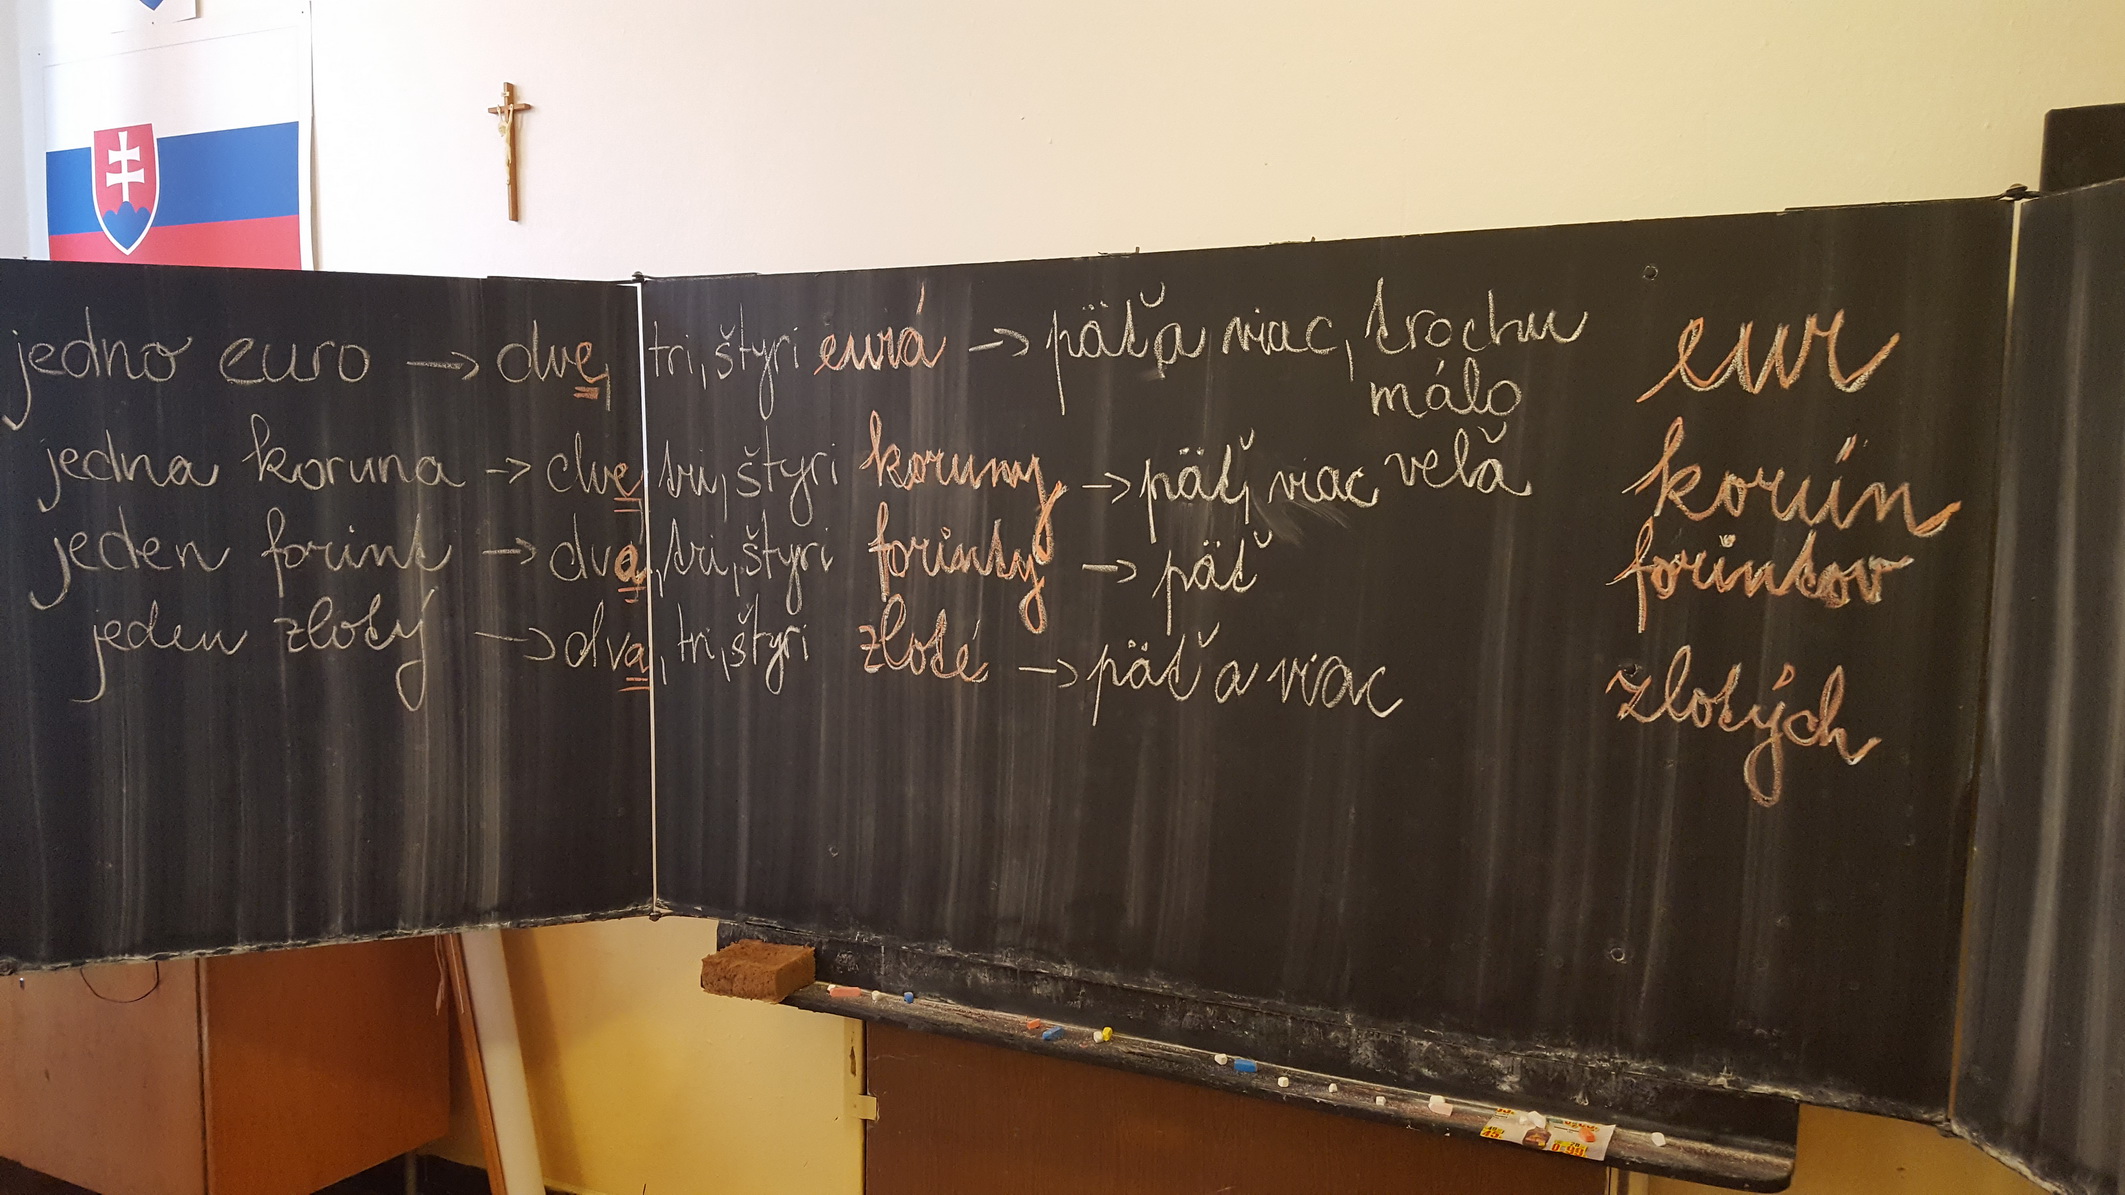 jedno euro → dve, tri, štyri eurá → päť a viac, trochu eur
málo
jedna koruna → dve, tri, štyri koruny → päť, viac veľa korún
jeden forint → dva, tri, štyri forinty → päť forintov
jeden zlotý → dva, tri, štyri zloté → päť a viac zlotých